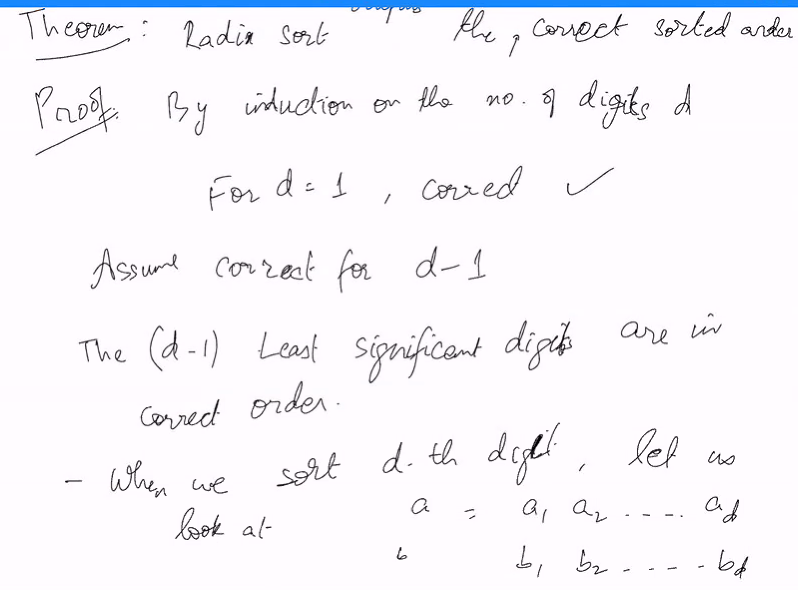 Theorem: Radix sort the, correct sorted order
Proof. By induction on the no. of digits d
For d = 1, correct ✓
Assume correct for d-1
The (d-1) Least significant digits are in
correct order.
- When we sort d-th digit, let us
look at a = a₁ a₂ ----. a_d
b b₁ b₂ ----- b_d